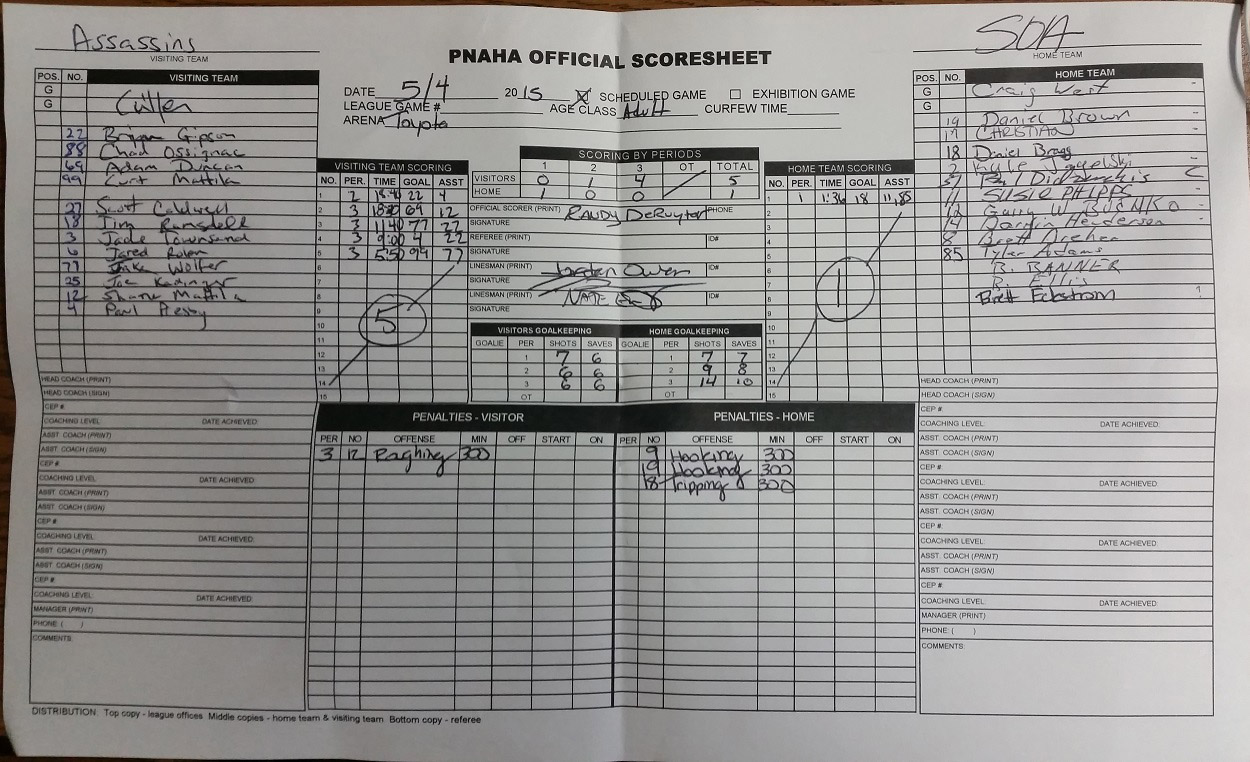 Assassins
VISITING TEAM
PNAHA OFFICIAL SCORESHEET
SOA
HOME TEAM
POS. NO. VISITING TEAM
G
G Cullen
22 Brian Gipson
88 Chad Ossignac
69 Adam Duncan
99 Curt Mattila
27 Scott Caldwell
18 Tim Ramsdell
3 Jade Townsend
6 Jared Rolen
77 Jake Wolfer
25 Joe
12 Shane Mattila
4 Paul Presby
HEAD COACH (PRINT)
HEAD COACH (SIGN)
CEP #
COACHING LEVEL: DATE ACHIEVED:
ASST. COACH (PRINT)
ASST. COACH (SIGN)
CEP #
COACHING LEVEL: DATE ACHIEVED:
ASST. COACH (PRINT)
ASST. COACH (SIGN)
CEP #
COACHING LEVEL: DATE ACHIEVED:
ASST. COACH (PRINT)
ASST. COACH (SIGN)
CEP #
COACHING LEVEL: DATE ACHIEVED:
MANAGER (PRINT)
PHONE ( )
COMMENTS:
DATE 5/4 2015 SCHEDULED GAME EXHIBITION GAME
LEAGUE GAME # AGE CLASS Adult CURFEW TIME
ARENA Toyota
VISITING TEAM SCORING
NO. PER. TIME GOAL ASST
1 2 22 4
2 3 69 12
3 3 11:40 77 22
4 3 9:00 4 22
5 3 5:50 99 77
6
7
8
9
10
11
12
13
14
15
5
SCORING BY PERIODS
1 2 3 OT TOTAL
VISITORS 0 1 4 5
HOME 1 0 0 1
OFFICIAL SCORER (PRINT) RANDY DeRuyter PHONE
SIGNATURE
REFEREE (PRINT) ID#
SIGNATURE
LINESMAN (PRINT) Jordan Owen ID#
SIGNATURE
LINESMAN (PRINT) NATE ID#
SIGNATURE
VISITORS GOALKEEPING HOME GOALKEEPING
GOALIE PER SHOTS SAVES GOALIE PER SHOTS SAVES
1 7 6 1 7 7
2 6 6 2 9 8
3 6 6 3 14 10
OT OT
HOME TEAM SCORING
NO. PER. TIME GOAL ASST
1 1 1:36 18 11,85
2
3
4
5
6
7
8
9
10
11
12
13
14
15
1
PENALTIES - VISITOR PENALTIES - HOME
PER NO OFFENSE MIN OFF START ON PER NO OFFENSE MIN OFF START ON
3 12 Roughing 300 9 Hooking 300
19 Hooking 300
18 Tripping 300
POS. NO. HOME TEAM
G Craig West
G
19 Daniel Brown
17 CHRISTIAN
18 Daniel Bragg
Kyle
37
SUSIE PHIPPS
Garry W
14 Darrin Henderson
8 Brett Archer
85 Tyler Adams
B. BANNER
R. Ellis
Brett Eckstrom
HEAD COACH (PRINT)
HEAD COACH (SIGN)
CEP #
COACHING LEVEL: DATE ACHIEVED:
ASST. COACH (PRINT)
ASST. COACH (SIGN)
CEP #
COACHING LEVEL: DATE ACHIEVED:
ASST. COACH (PRINT)
ASST. COACH (SIGN)
CEP #
COACHING LEVEL: DATE ACHIEVED:
ASST. COACH (PRINT)
ASST. COACH (SIGN)
CEP #
COACHING LEVEL: DATE ACHIEVED:
MANAGER (PRINT)
PHONE: ( )
COMMENTS:
DISTRIBUTION: Top copy - league offices Middle copies - home team & visiting team Bottom copy - referee